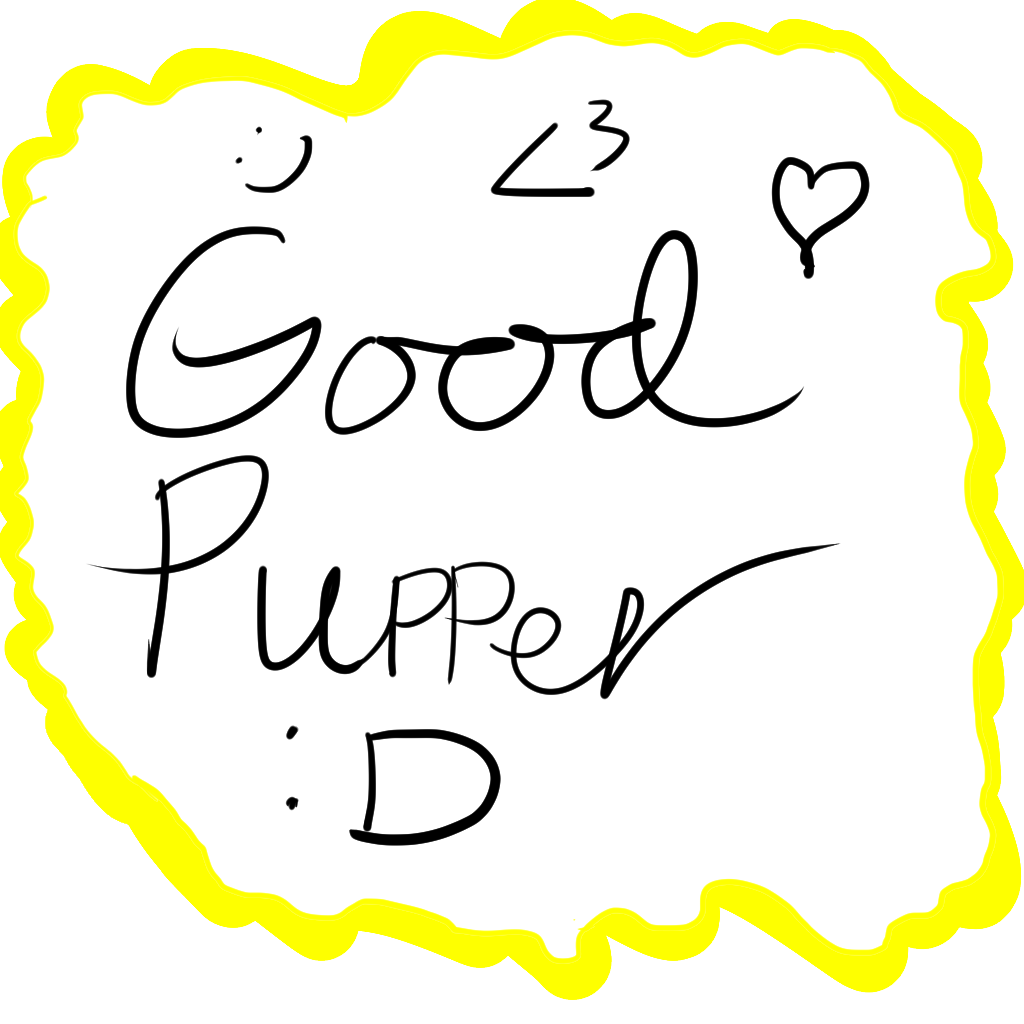 :) <3
Good
Pupper
:D